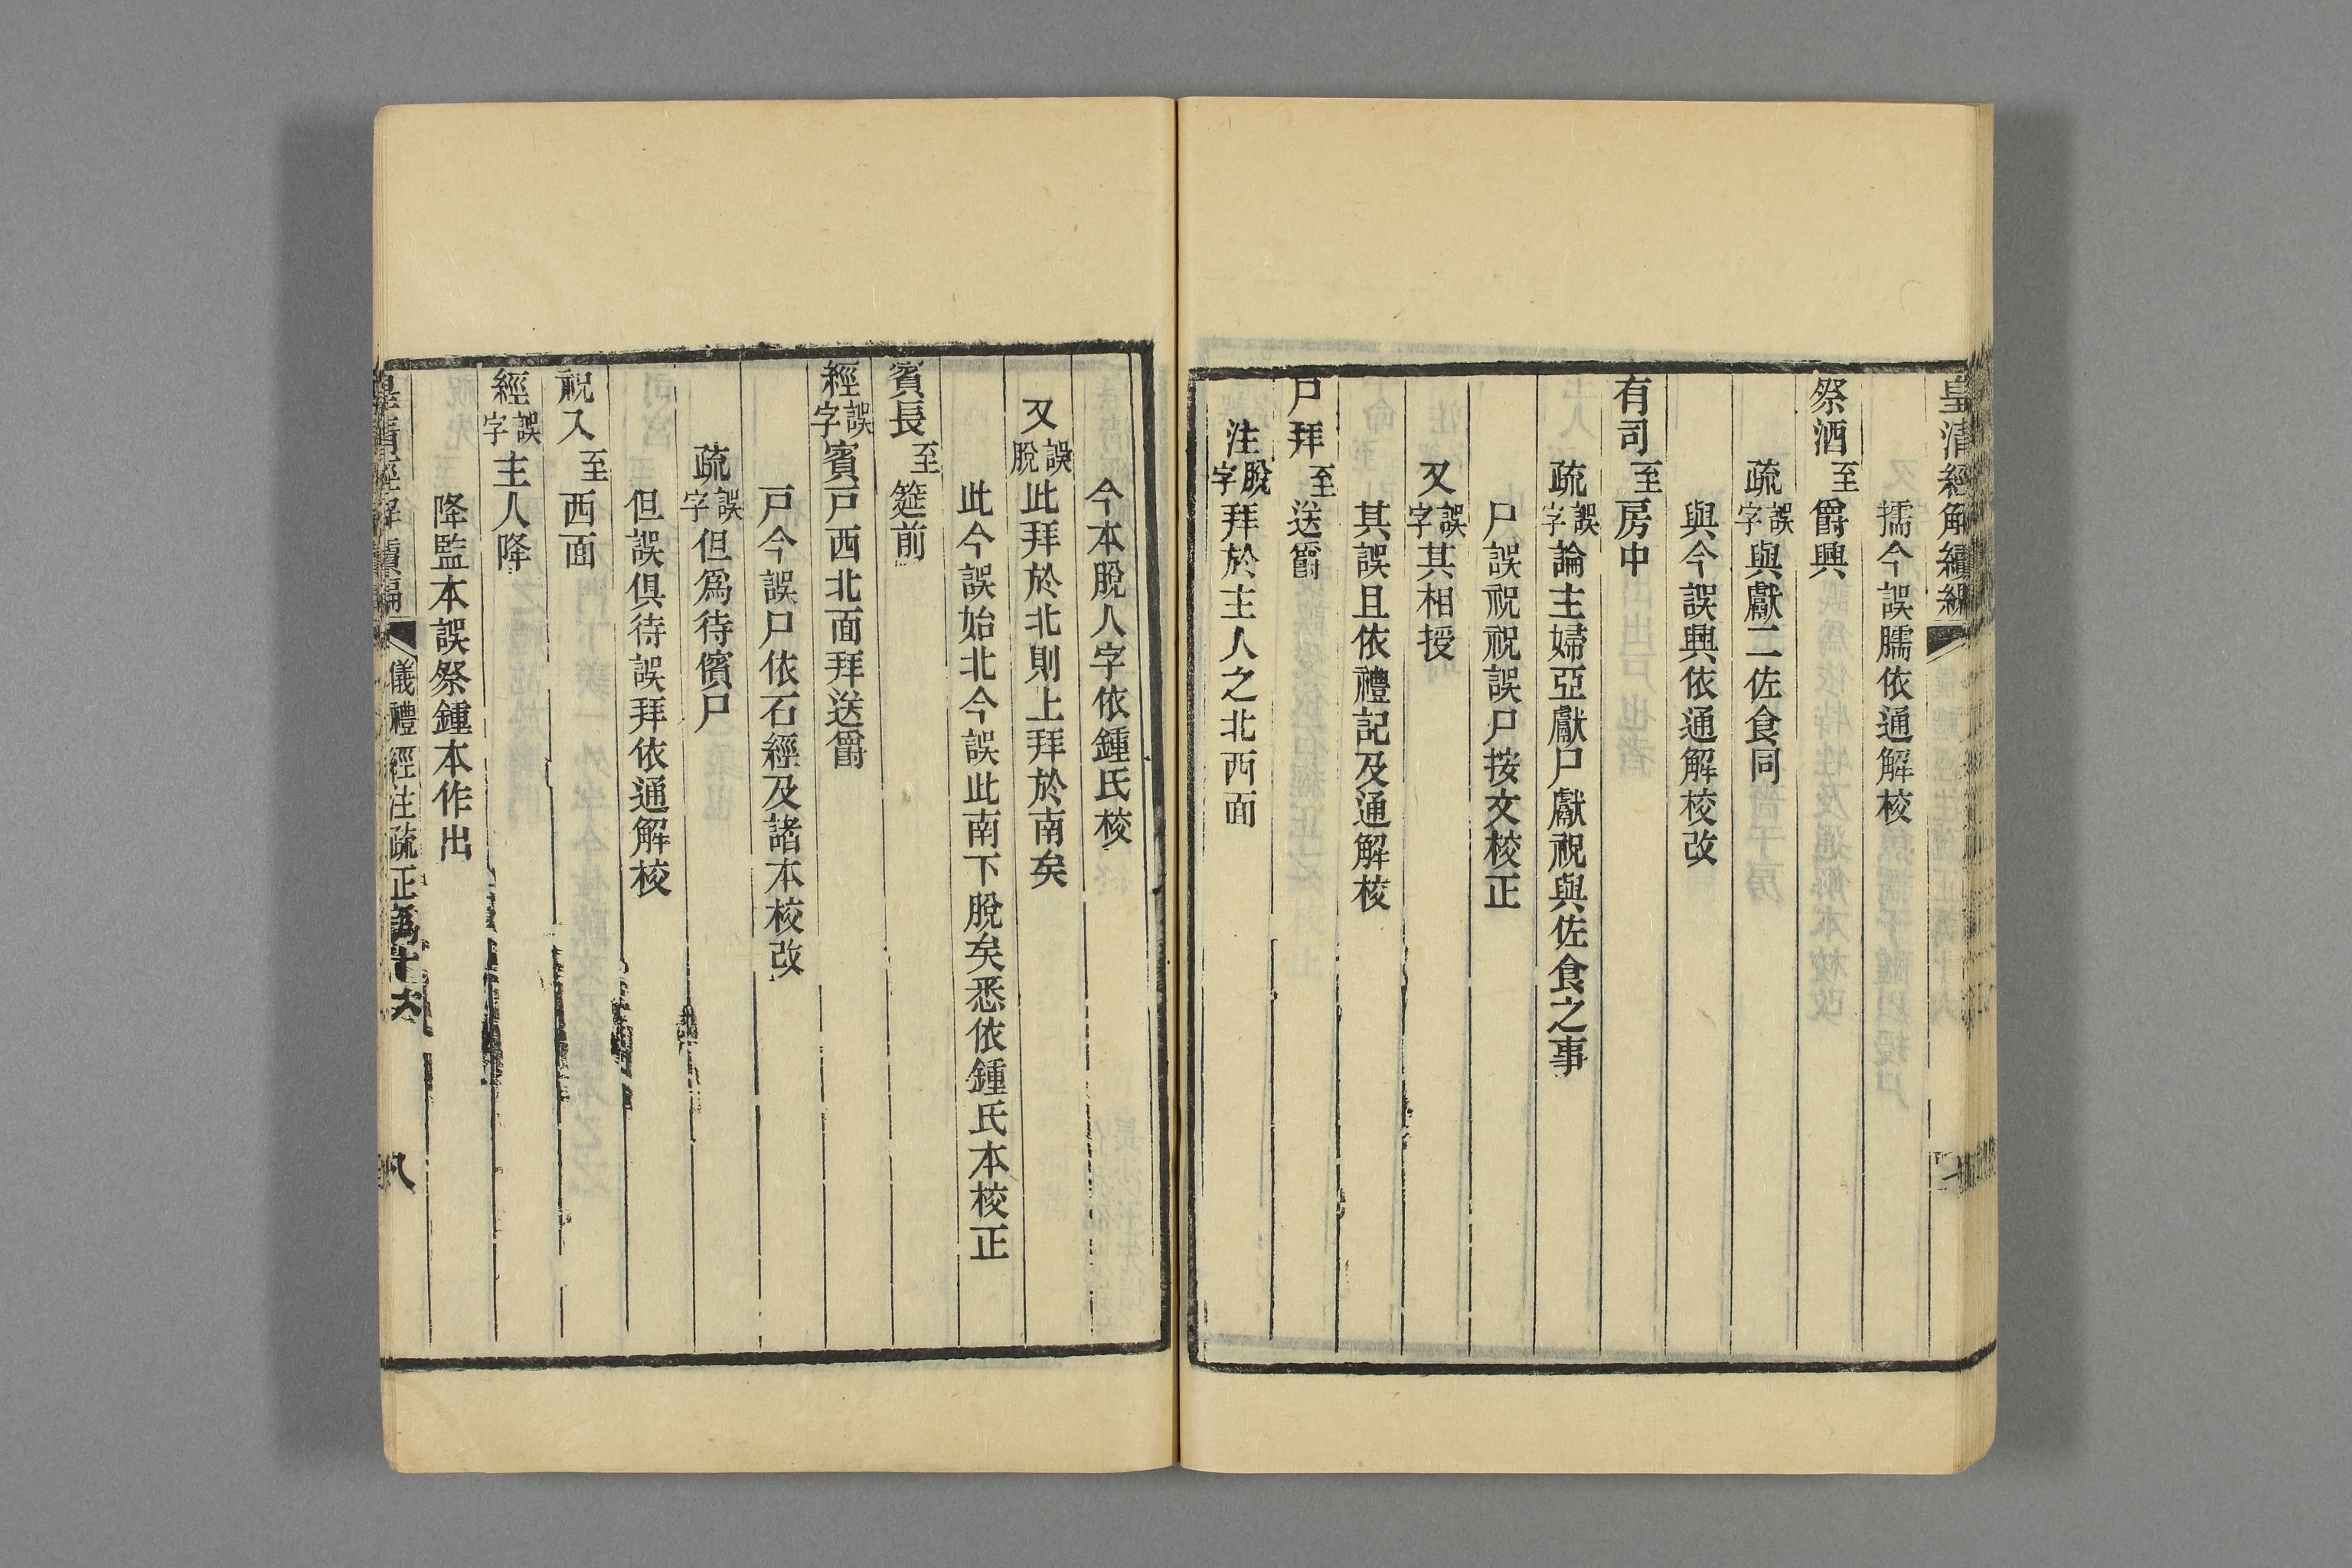 皇清經解續編
擩今誤臑依通解校
祭酒至爵興
疏誤字與獻二佐食同
與今誤興依通解校改
有司至房中
疏誤字論主婦亞獻尸獻祝與佐食之事
尸誤祝祝誤尸按文校正
又誤字其相授
其誤且依禮記及通解校
尸拜至送爵
注脫字拜於主人之北西面
今本脫人字依鍾氏校
又誤脫此拜於北則上拜於南矣
此今誤始北今誤此南下脫矣悉依鍾氏本校正
賓長至筵前
經誤字賓戸西北面拜送爵
戸今誤尸依石經及諸本校改
疏誤字但爲待儐尸
但誤俱待誤拜依通解校
祝入至西面
經誤字主人降
降監本誤祭鍾本作出
皇清經解續編 儀禮經注疏正譌十六 八